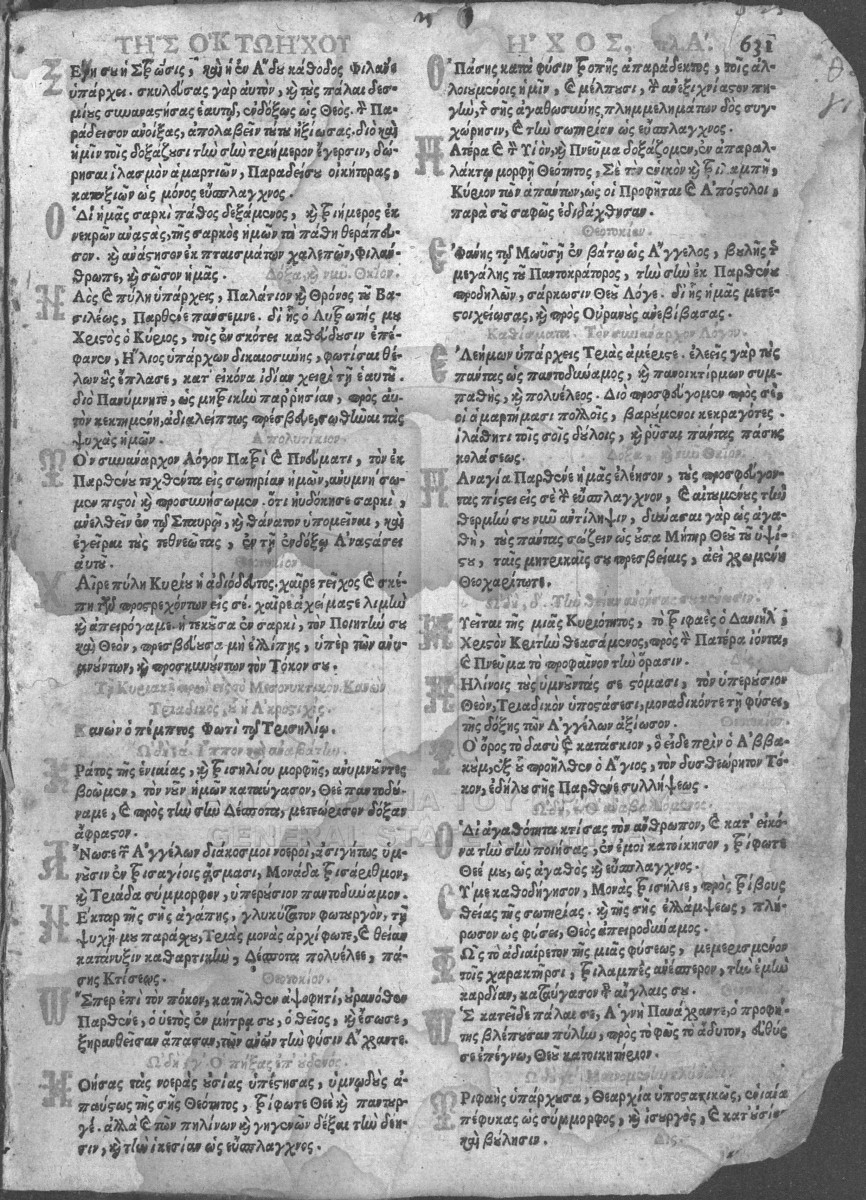 ΤΗΣ ΟΚΤΩΗΧΟΥ
ΗΧΟΣ, πλ. Α΄. 631
Σ Εγήσου ἡ Σταύρωσις, καὶ ἡ ἐν Ἅδου κάθοδος Φιλάνε
ὑπάρχει. σκυλεύσας γὰρ αὐτὸν, καὶ τοὺς πάλαι δεσ-
μίους συναναστήσας ἑαυτῷ, ἐνδόξως ὡς Θεός. τὸν Πα-
ράδεισον ἀνοίξας, ἀπολαβεῖν τούτου ἠξίωσας. διὸ καὶ
ἡμῖν τοῖς δοξάζουσι τὴν σὴν τριήμερον ἔγερσιν, δώ-
ρησαι ἱλασμὸν ἁμαρτιῶν, Παραδείσου οἰκήτορας,
καταξιῶν ὡς μόνος εὔσπλαγχνος.
Ὁ Δι' ἡμᾶς σαρκὶ πάθος δεξάμενος, καὶ τριήμερος ἐκ
νεκρῶν ἀναστὰς, τῆς σαρκὸς ἡμῶν τὰ πάθη θεράπευ-
σον. καὶ ἀνάστησον ἐκ πταισμάτων χαλεπῶν, Φιλάν-
θρωπε, καὶ σῶσον ἡμᾶς. Δόξα, καὶ νῦν. Θκίον.
Ν Αὸς καὶ πύλη ὑπάρχεις, Παλάτιον καὶ Θρόνος τοῦ Βα-
σιλέως, Παρθένε πάνσεμνε. δι' ἧς ὁ Λυτρωτής μου
Χριστὸς ὁ Κύριος, τοῖς ἐν σκότει καθεύδουσιν ἐπέ-
φανεν, Ἥλιος ὑπάρχων δικαιοσύνης, φωτίσαι θέ-
λων οὓς ἔπλασε, κατ' εἰκόνα ἰδίαν χειρὶ τῇ ἑαυτοῦ.
διὸ Πανύμνητε, ὡς μητρικὴν παρρησίαν, πρὸς αὐ-
τὸν κεκτημένη, ἀδιαλείπτως πρέσβευε, σωθῆναι τὰς
ψυχὰς ἡμῶν. Ἀπολυτίκιον.
Τ Ὸν συνάναρχον Λόγον Πατρὶ καὶ Πνεύματι, τὸν ἐκ
Παρθένου τεχθέντα εἰς σωτηρίαν ἡμῶν, ἀνυμνή-
σωμεν πιστοὶ καὶ προσκυνήσωμεν. ὅτι ηὐδόκησε σαρκὶ,
ἀνελθεῖν ἐν τῷ Σταυρῷ, καὶ θάνατον ὑπομεῖναι, καὶ
ἐγεῖραι τοὺς τεθνεῶτας, ἐν τῇ ἐνδόξῳ Ἀναστάσει
αὐτοῦ. Θεοτοκίον
Χ Αῖρε πύλη Κυρίου ἡ ἀδιόδευτος. χαῖρε τεῖχος καὶ σκέ-
πη τῶν προστρεχόντων εἰς σέ. χαῖρε ἀχείμαστε λιμὴν
καὶ ἀπειρόγαμε. ἡ τεκοῦσα ἐν σαρκὶ, τὸν Ποιητήν σου
καὶ Θεὸν, πρεσβεύουσα μὴ ἐλλίπῃς, ὑπὲρ τῶν ἀνυ-
μνούντων, καὶ προσκυνούντων τὸν Τόκον σου.
Τῇ Κυριακῇ πρωῒ εἰς τὸ Μεσονυκτικὸν Κανὼν
Τριαδικὸς, οὗ ἡ Ἀκροστιχίς.
Κανὼν ὁ πέμπτος Φωτὶ τῷ Τρισηλίῳ.
Ὠδὴ ά. Ἵππον καὶ ἀναβάτην.
Κ Ράτος τῆς ἑνιαίας, καὶ τρισηλίου μορφῆς, ἀνυμνοῦντες
βοῶμεν, τὸν νοῦν ἡμῶν καταύγασον, Θεὲ παντοδύ-
ναμε, καὶ πρὸς τὴν σὴν Δέσποτα, μετεώρισον δόξαν
ἄφραστον.
Ἄ Νωσε τῶν Ἀγγέλων διάκοσμοι νοεροὶ, ἀσιγήτως ὑμ-
νοῦσιν ἐν τρισαγίοις ᾄσμασι, Μονάδα τρισάριθμον,
καὶ Τριάδα σύμμορφον, ὑπερούσιον παντοδύναμον.
Ν Έκταρ τῆς σῆς ἀγάπης, γλυκύτατον φωτουργὸν, τῇ
ψυχῇ μου παράσχου, Τριὰς μονὰς ἀρχίφωτε, καὶ θείαν
κατάνυξιν καθαρτικὴν, Δέσποτα πολυέλεε, πά-
σης Κτίσεως. Θεοτοκίον.
Ὥ Σπερ ἐπὶ τὸν πόκον, κατῆλθεν ἀψοφητὶ, οὐρανόθεν
Παρθένε, ὁ ὑετὸς ἐν μήτρᾳ σου, ὁ θεῖος, καὶ ἔσωσε,
ξηρανθεῖσαν ἅπασαν, τῶν ἀνων τὴν φύσιν Ἄχραντε.
Ὠδὴ, γ΄ Ὁ πήξας ἐπ' οὐδενός.
Ν Οήσας τὰς νοερὰς οὐσίας ὑπέστησας, ὑμνῳδοὺς ἀ-
παύστως τῆς σῆς Θεότητος, τρίφωτε Θεὲ καὶ παντουρ-
γέ. ἀλλὰ καὶ τῶν πηλίνων καὶ γηγενῶν δέξαι τὴν δέη-
σιν, καὶ τὴν ἱκεσίαν ὡς εὔσπλαγχνος.
Ὁ Πάσης κατὰ φύσιν τροπῆς ἀπαράδεκτος, τοῖς ἀλ-
λοιουμένοις ἡμῖν, καὶ μέλπουσι, τὴν ἀνεξιχνίαστον πη-
γὴν, τῆς σῆς ἀγαθωσύνης, πλημμελημάτων δὸς συγ-
χώρησιν, καὶ τὴν σωτηρίαν ὡς εὔσπλαγχνος.
Π Ατέρα καὶ τὸν Υἱὸν, καὶ Πνεῦμα δοξάζομεν, ἐν ἀπαραλ-
λάκτῳ μορφῇ Θεότητος, Σὲ τὸν ἑνικὸν καὶ τριλαμπῆ,
Κύριον τῶν ἁπάντων, ὡς οἱ Προφῆται καὶ Ἀπόστολοι,
παρὰ σοῦ σαφῶς ἐδιδάχθησαν.
Θεοτοκίον.
Ἐ Φάνης τῷ Μωσῇ ἐν βάτῳ ὡς Ἄγγελος, βουλῆς τῆς
μεγάλης τοῦ Παντοκράτορος, τὴν σὴν ἐκ Παρθένου
προδηλῶν, σάρκωσιν Θεοῦ Λόγε. δι' ἧς ἡμᾶς μετε-
στοιχείωσας, καὶ πρὸς Οὐρανοὺς ἀνεβίβασας.
Καθίσματα. Τὸν συνάναρχον Λόγον.
Ἐ Λεήμων ὑπάρχεις Τριὰς ἀμέριστε. ἐλεεῖς γὰρ τοὺς
πάντας ὡς παντοδύναμος, καὶ πανοικτίρμων συμ-
παθὴς, καὶ πολυέλεος. Διὸ προσφεύγομεν πρὸς σὲ,
οἱ ἁμαρτήμασι πολλοῖς, βαρυμένοι κεκραγότες.
ἱλάσθητι τοῖς σοῖς δούλοις, καὶ ῥῦσαι πάντας πάσης
κολάσεως. Δόξα, καὶ νῦν. Θκίον.
Π Αναγία Παρθένε ἡμᾶς ἐλέησον, τοὺς προσφεύγον-
τας πίστει εἰς σὲ τὴν εὔσπλαγχνον, καὶ αἰτουμένους τὴν
θερμήν σου νῦν ἀντίληψιν, δύνασαι γὰρ ὡς ἀγα-
θὴ, τοὺς πάντας σώζειν ὡς οὖσα Μήτηρ Θεοῦ τοῦ ὑψί-
στου, ταῖς μητρικαῖς σου πρεσβείαις, ἀεὶ χρωμένη
Θεοχαρίτωτε.
Ὠδὴ, δ΄. Τὴν θείαν ἐννοήσας σου κένωσιν.
Μ Υεῖται τῆς μιᾶς Κυριότητος, τὸ τριφαὲς ὁ Δανιὴλ,
Χριστὸν Κριτὴν θεασάμενος, πρὸς τὸν Πατέρα ἰόντα,
καὶ Πνεῦμα τὸ προφαῖνον τὴν ὅρασιν. Δίς.
Π Ηλίνοις τοὺς ὑμνοῦντάς σε στόμασι, τὸν ὑπερούσιον
Θεὸν, Τριαδικὸν ὑποστάσεσι, μοναδικὸν δὲ τῇ φύσει,
τῆς δόξης τῶν Ἀγγέλων ἀξίωσον. Θεοτοκίον.
Τ Ὸ ὄρος τὸ δασὺ καὶ κατάσκιον, ὃ εἶδε πρὶν ὁ Ἀββα-
κοὺμ, ἐξ οὗ προῆλθεν ὁ Ἅγιος, τὸν δυσθεώρητον Τό-
κον, ἐδήλου σῆς Παρθένε συλλήψεως.
Ὠδὴ, ε΄. Ὁ ἀναβαλλόμενος.
Ὁ Δι' ἀγαθότητα κτίσας τὸν ἄνθρωπον, καὶ κατ' εἰκό-
να τὴν σὴν ποιήσας, ἐν ἐμοὶ κατοίκησον, τρίφωτε
Θεέ μου, ὡς ἀγαθὸς καὶ εὔσπλαγχνος.
Σ Ύ με καθοδήγησον, Μονὰς τρισήλιε, πρὸς τρίβους
θείας τῆς σωτηρίας. καὶ τῆς σῆς ἐλλάμψεως, πλή-
ρωσον ὡς φύσει, Θεὸς ἀπειροδύναμος.
Φ Ω͂ς τὸ ἀδιαίρετον τῆς μιᾶς φύσεως, μεμερισμένον
τοῖς χαρακτῆρσι, τριλαμπὲς ἀνέσπερον, τὴν ἐμὴν
καρδίαν, καταύγασον ταῖς αἴγλαις σου.
Ὥ Σ κατεῖδε πάλαι σε, Ἁγνὴ Πανάχραντε, ὁ προφή-
της βλέπουσαν πύλην, πρὸς τὸ φῶς τὸ ἄδυτον, εὐθύς
σε ἐπέγνω, Θεοῦ κατοικητήριον.
Τ Ριφαὴς ὑπάρχουσα, Θεαρχία ὑποστατικῶς, ἑνιαία
πέφυκας ὡς σύμμορφος, καὶ ἰσουργὸς, καὶ κατ' οὐσίαν
καὶ βούλησιν. Δίς.